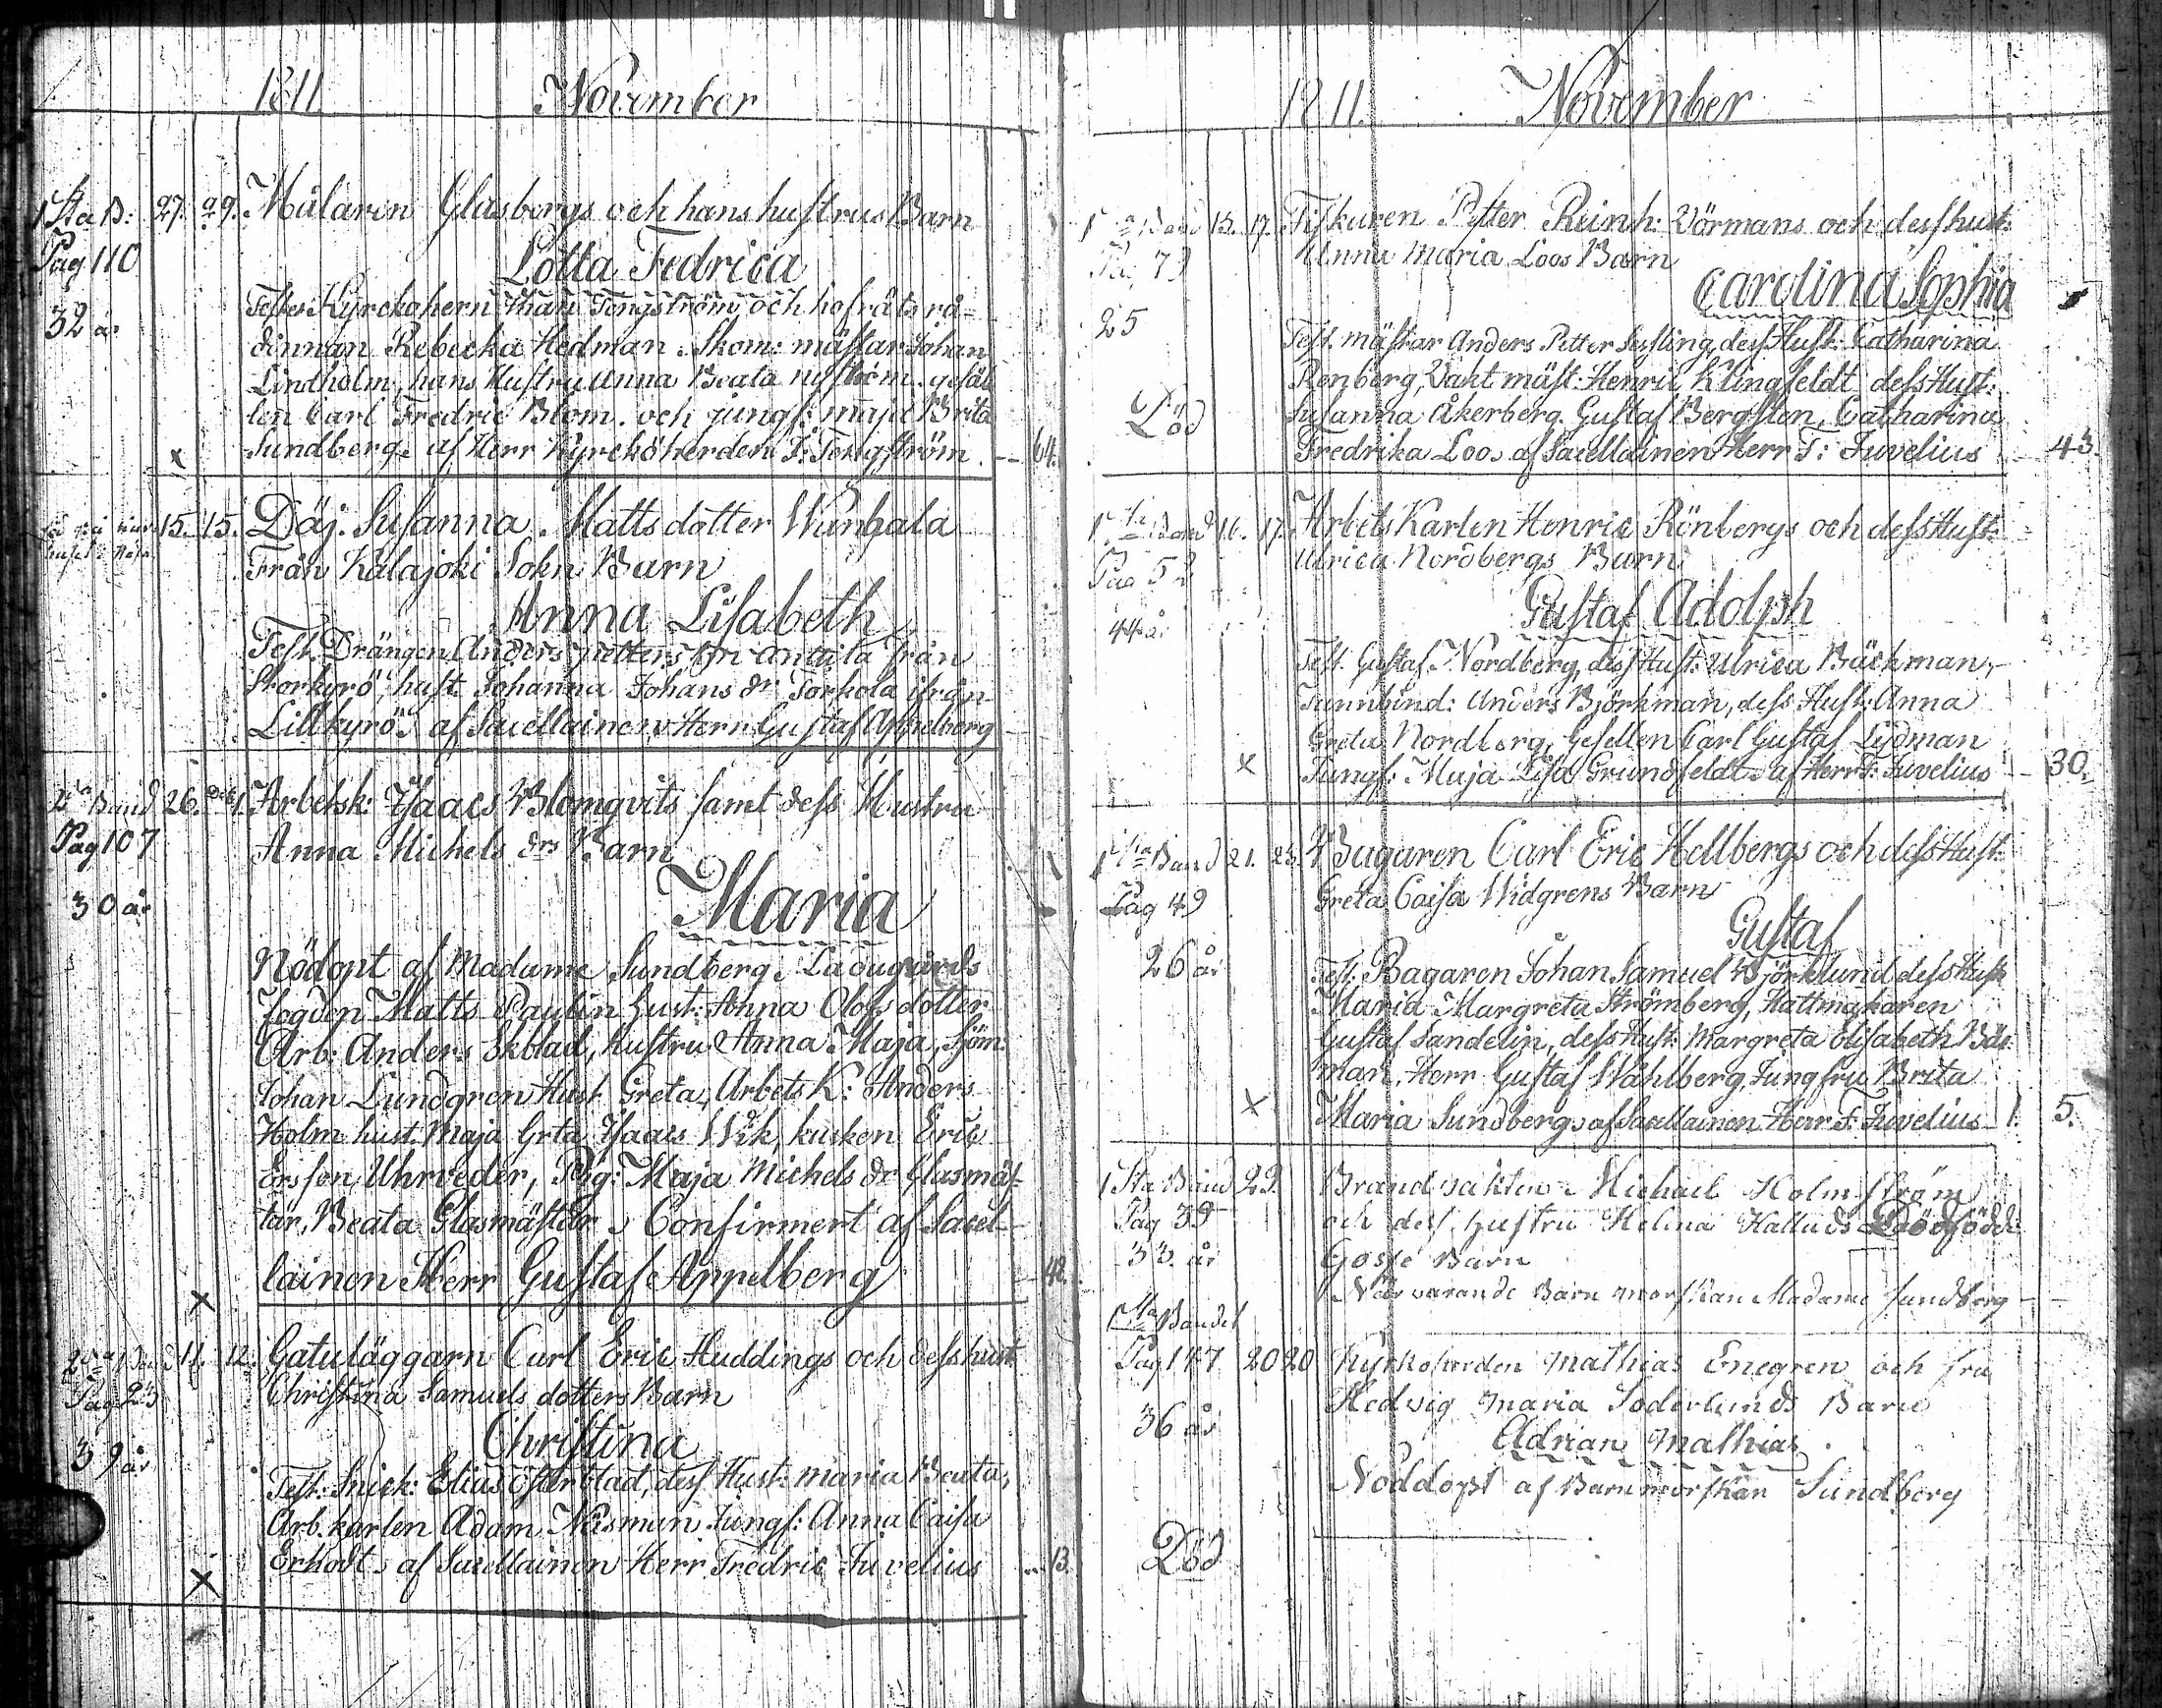 1811 November
1 Sta B: 27. 29. Målaren Glasbergs och hans hustrus Barn
Pag 110
Lotta Fedrica
32 år
Test. Kyrckohern Johan Tengström och hofråtsrå=
dinnan Rebecka Hedman. Skom: mästar Johan
Lindholm, hans Hustru Anna Beata nyström. gesäl
len Carl Fredric Blom. och jungf: maja Brita
Sundberg. af Herr Kyrckoherden J: Tengström. 64.
x
15. 15. Däj. Susanna. Matts dotter
Från Kalajoki Sokn Barn
Anna Lisabeth
Test. Drängen Anders petters son antila från
Storkyrö, hust. Johanna Johans dr Torkola ifrån
Lillkyrö. af Sacellainen Herr Gustaf Appelberg
2dra Band 26. Dec 1. Arbetsk: Isaacs Blomqvits samt dess Hustru
Pag 107 Anna Michels drs Barn
30 år
Maria
Nödopt af Madame Sundberg. Ladugårds
fogden Matts Paulin hust: Anna Olofs dotter
Arb: Anders Ekblad, hustru Anna Maja, Sjöm:
Johan Lundgren Hust Greta, Arbets K: Anders
Holm hust. Maja Grta, Isaacs Wik, kusken Eric
Ersson Uhrveder, Pig: Maja Michels dr Glasmäs-
tar, Beata Glasmästar. Confirmert af Sacel-
lainen Herr Gustaf Appelberg 48.
x
2dra Band 11. 12. Gatuläggarn Carl Eric Huddings och dess hust.
Pag 23 Christina Samuels dotters Barn
Christina
39 år
Test: Snick: Elias österblad, dess Hust: maria Beata,
Arb. karlen Adam Nisman Jungf: Anna Caisa
Erholt. af Sacellainen Herr Fredric Juvelius 13.
x
1811. November
1 sta Band 15. 17. Fiskaren Petter Reinh: Wörmans och dess hust:
Pag 79 Anna Maria Loos Barn
Carolina Sophia
25
Test. mästar Anders Petter dess Hust: Catharina
Renberg, Vakt mäst: Henric Klingfeldt dess Hust:
Död
Susanna Åkerberg. Gustaf Bergsten, Catharina
Fredrika Loo. af Sacellainen Herr F: Juvelius 43.
1 sta Band 16. 17. Arbets Karlen Henric Rönbergs och dess Hust:
Pag 52 Ulrica Nordbergs Barn
Gustaf Adolph
44 år
Test. Gustaf Nordberg, dess Hust: Ulrica Bäckman,
Tunnbind: Anders Björkman, dess Hust: Anna
Greta Nordberg, Gesellen Carl Gustaf Lydman
Jungf: Maja Lisa Grundfeldt. af Herr F: Juvelius 30.
x
1 sta Band 21. 23. Bagaren Carl Eric Hellbergs och dess Hust:
Pag 49 Greta Caisa Widgrens Barn
Gustaf
26 år
Test: Bagaren Johan Samuel Björklund dess Hust
Maria Margreta Strömberg, Hattmakaren
Gustaf Sandelin, dess Hust: Margreta Elisabeth Bäc
man, Herr Gustaf Wahlberg, Jungfru Brita
Maria Sundberg. af Sacellainen Herr F: Juvelius 1. 5.
x
1 Sta Band 29. Brandvakten Michael Holmström
Pag 39 och dess hustru Helena Halluds Dödfödde
33 år Gosse Barn
Närvarande Barnmorskan Madame Sundberg
1 sta Bandet
Pag 147 20 20 Kyrkoherden Mathias Enegren och fru
Hedvig Maria Söderlunds Barn
36 år
Adrian Mathias
Nöddopt af Barnmorskan Sundberg
Död